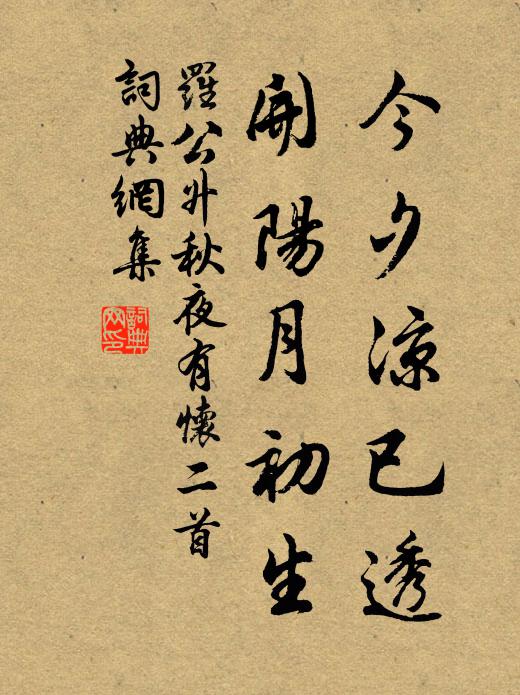 今夕凉已透
開陽月初生
羅公升秋夜有懷二首
詞典網集
詞典网印